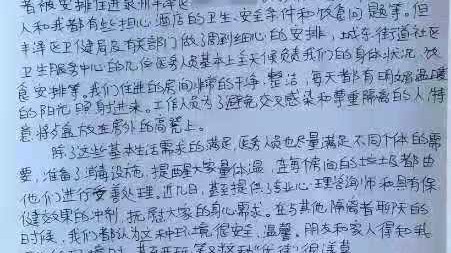 者被安排住进泉州丰泽区
人和我都有些担心酒店的卫生、安全条件和饮食问题等。但
丰泽区卫健局及有关部门做了周到细心的安排，城东街道社区
卫生服务中心的几位医务人员基本上全天候负责我们的身体状况、饮
食安排等。我们住进的房间非常的干净、整洁，每天都有明媚温暖
的阳光照射进来。工作人员为了避免交叉感染和尊重隔离的人，特
意将饭盒放在房外的高凳上。
除了这些基本生活需求的满足，医务人员也尽量满足不同个体的需
要，准备了消毒设施，提醒大家量体温，连每个房间的垃圾都由
他们进行妥善处理。近几日，甚至提供了专业心理咨询师和具有保
健效果的冲剂，抚慰大家的身心需求。在与其他隔离者聊天的
时候，我们都认为这种环境很安全、温馨。朋友和家人得知我